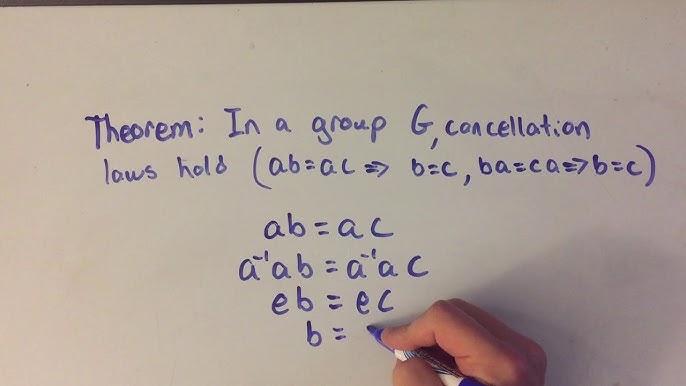 Theorem: In a group G, cancellation
laws hold (ab=ac => b=c, ba=ca=>b=c)
ab=ac
a⁻¹ab=a⁻¹ac
eb=ec
b=